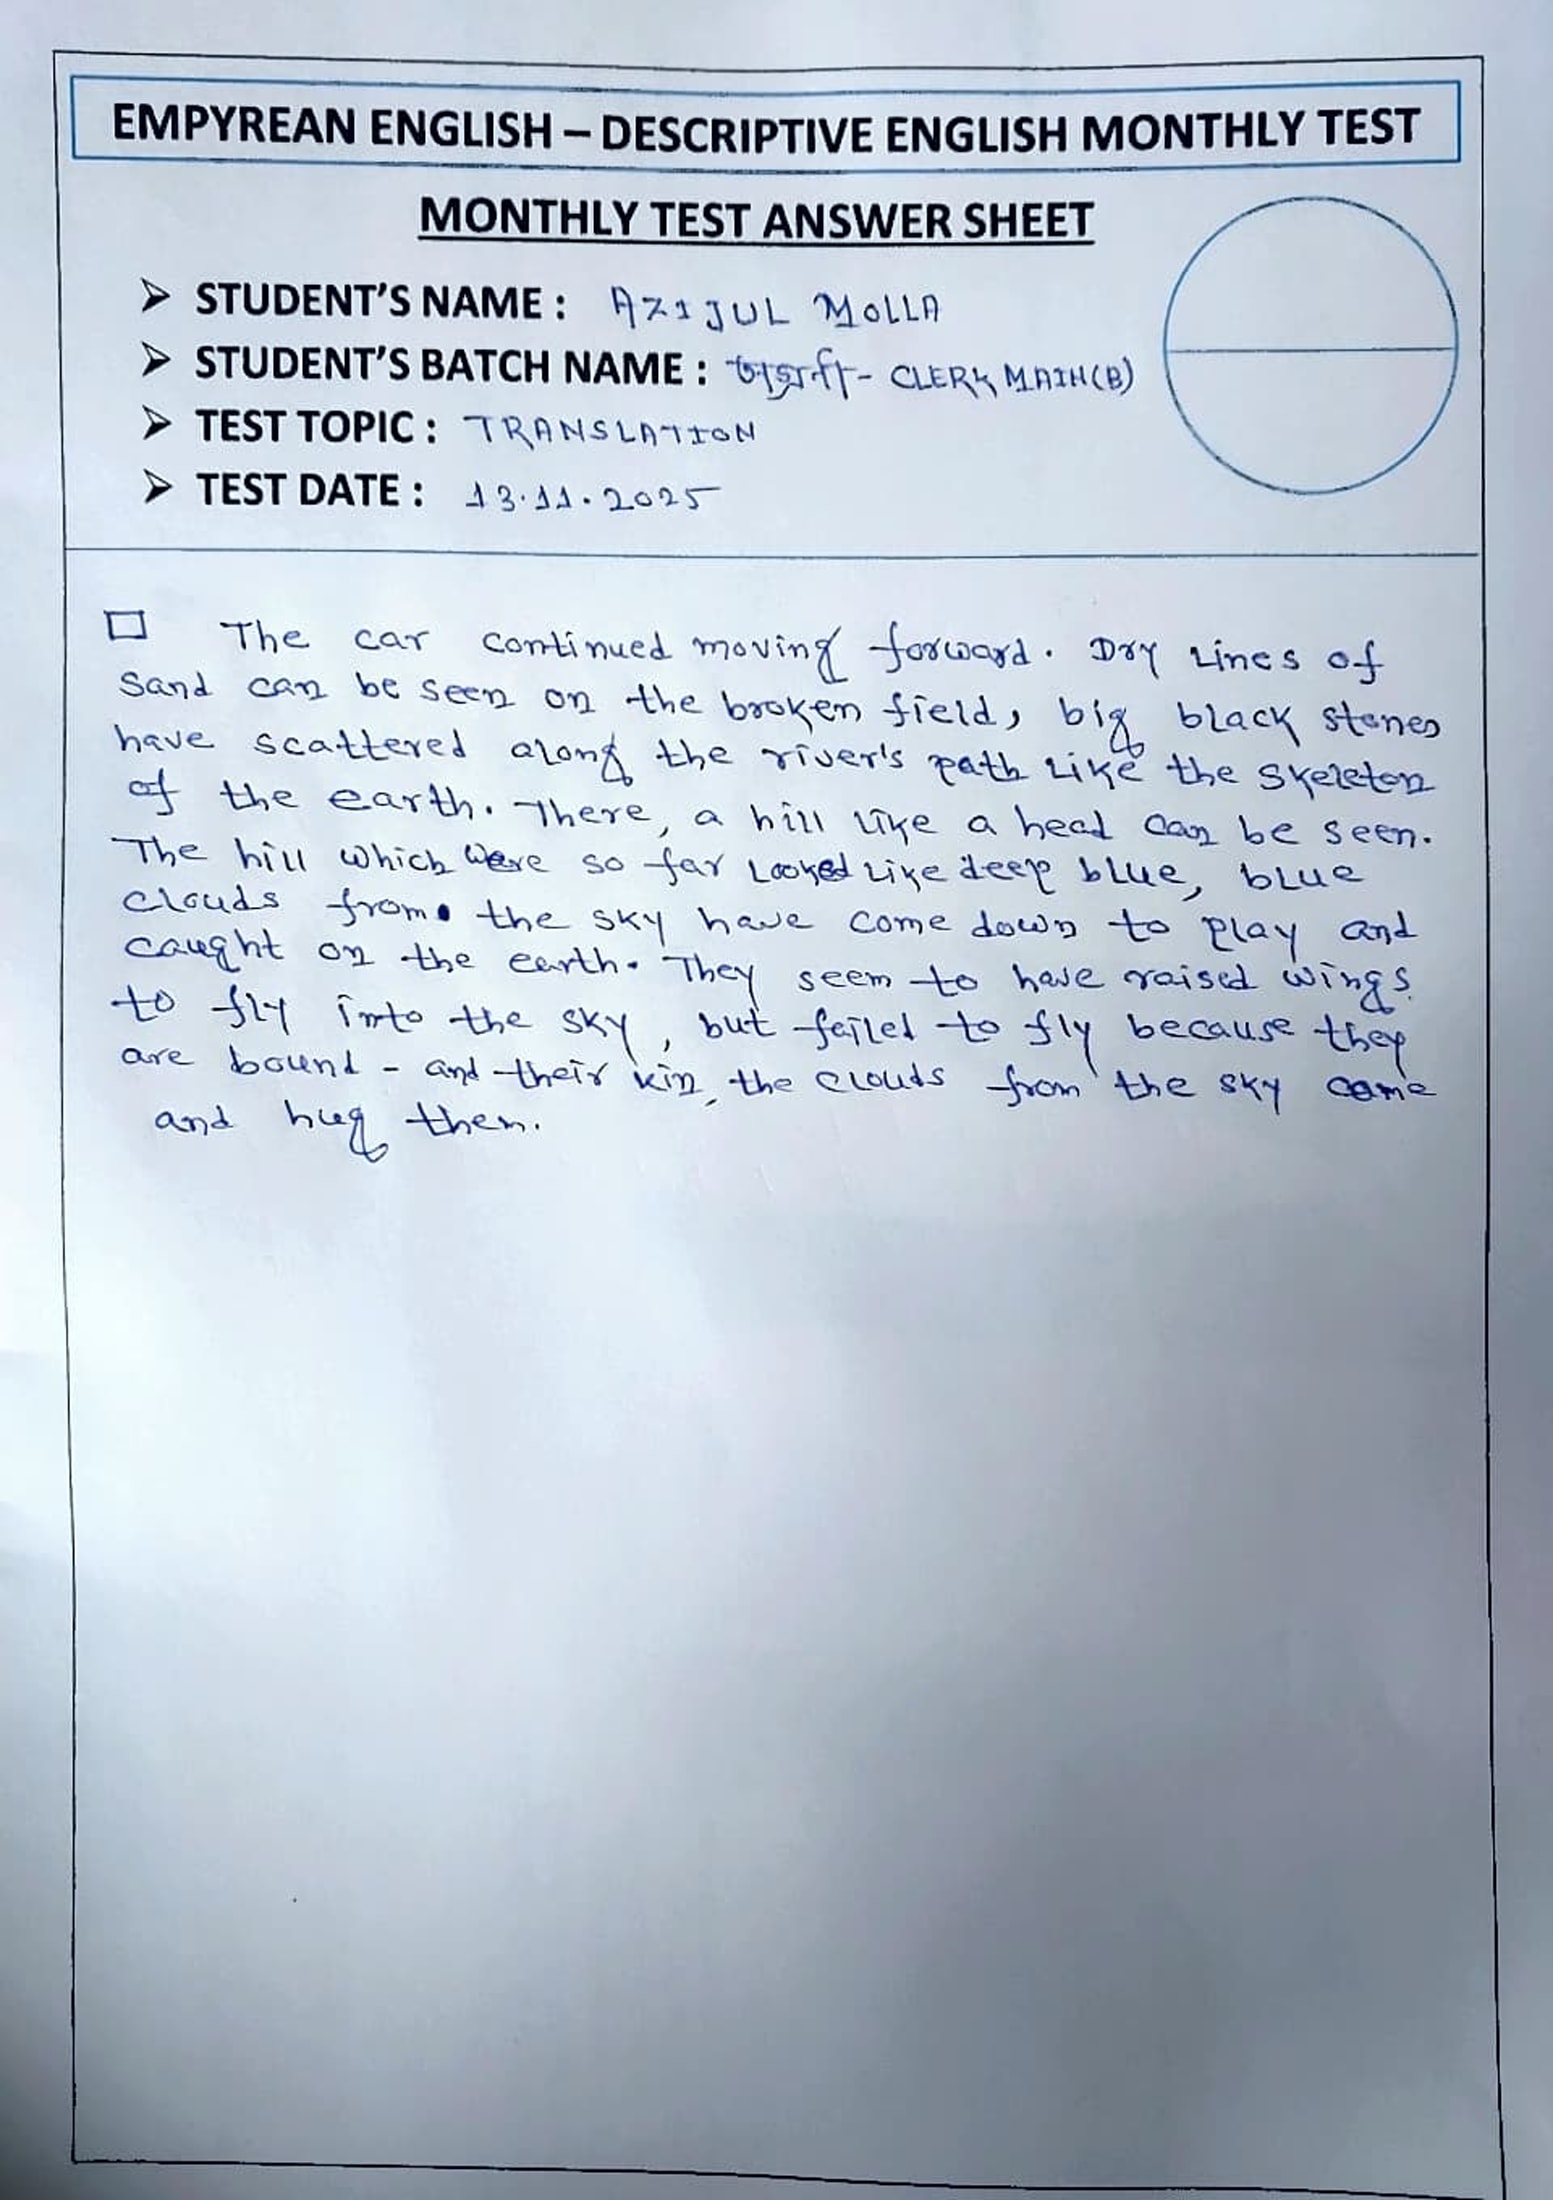 EMPYREAN ENGLISH – DESCRIPTIVE ENGLISH MONTHLY TEST
MONTHLY TEST ANSWER SHEET
➤ STUDENT'S NAME : AZIJUL MOLLA
➤ STUDENT'S BATCH NAME : - CLERK MAIN(B)
➤ TEST TOPIC : TRANSLATION
➤ TEST DATE : 13.11.2025
The car continued moving forward. Dry Lines of
Sand can be seen on the broken field, big black stones
have scattered along the river's path like the skeleton
of the earth. There, a hill like a head can be seen.
The hill which were so far Looked like deep blue, blue
clouds from the sky have come down to play and
caught on the earth. They seem to have raised wings
to fly into the sky, but failed to fly because they
are bound - and their kin, the clouds from the sky came
and hug them.